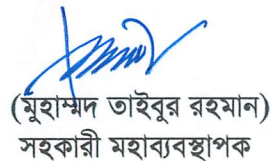 (মুহাম্মদ তাইবুর রহমান)
সহকারী মহাব্যবস্থাপক